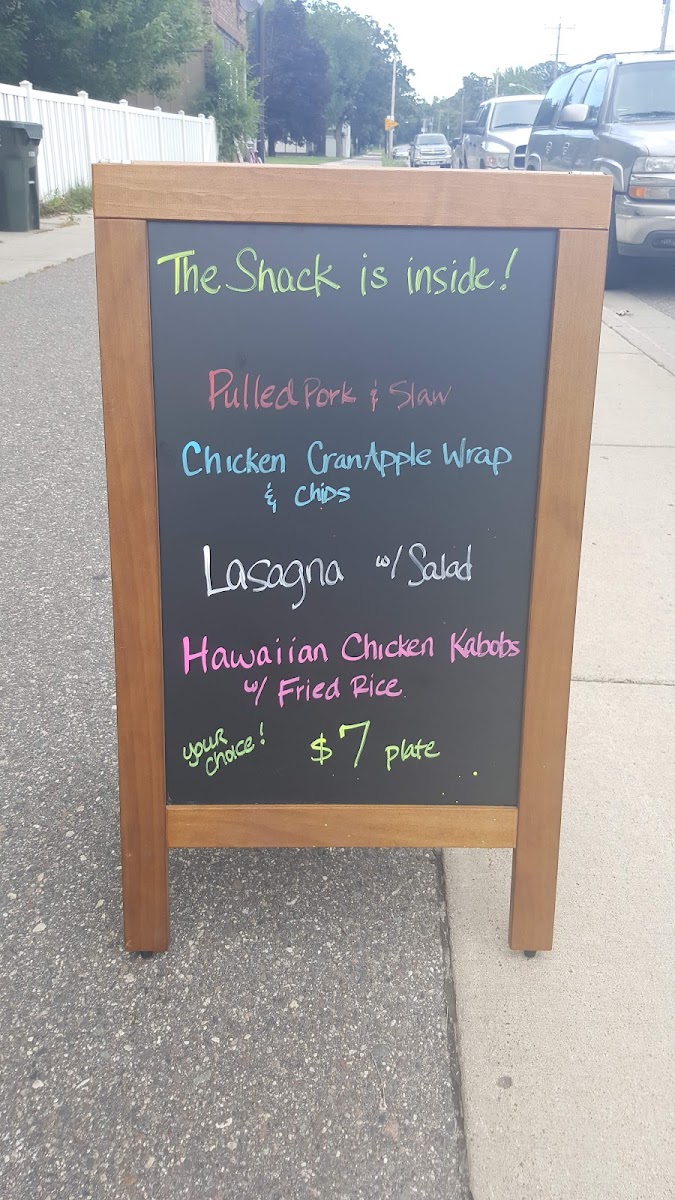 The Shack is inside!
Pulled Pork & Slaw
Chicken CranApple Wrap
& Chips
Lasagna w/ Salad
Hawaiian Chicken Kabobs
w/ Fried Rice
your
choice! $7 plate